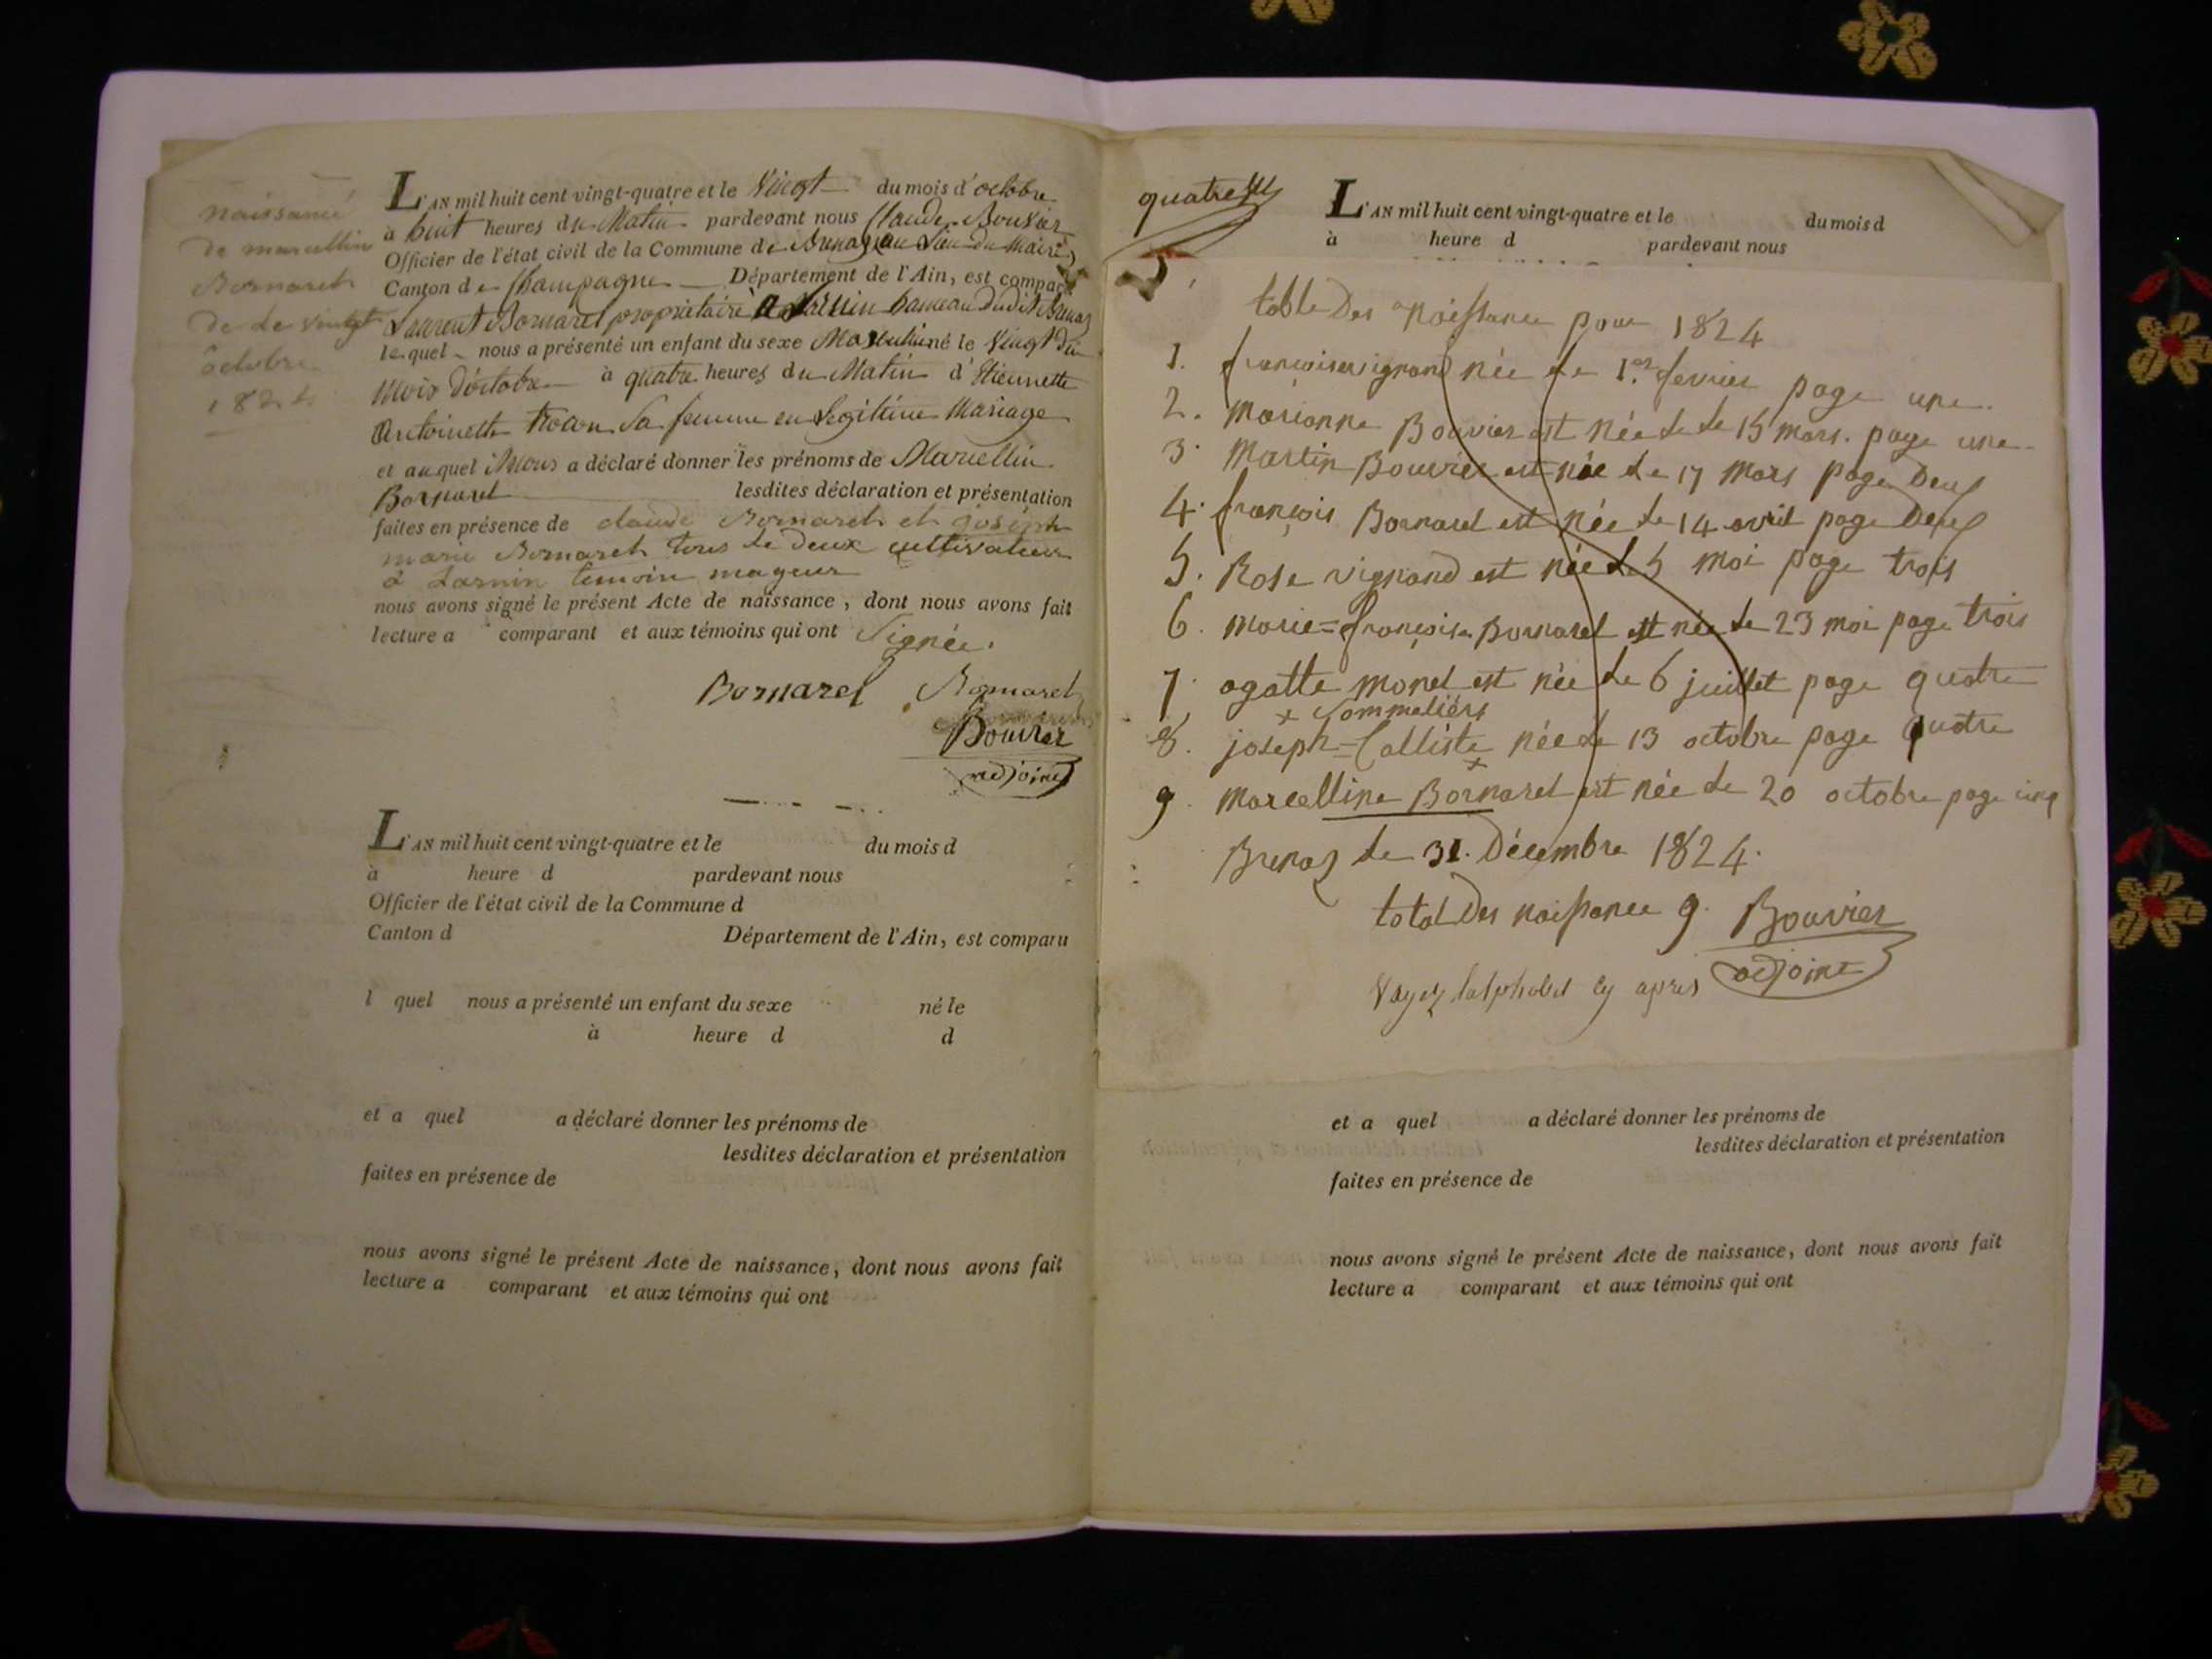 naissance
de marcellin
Bornarel
de le vingt
octobre
1824
L'AN mil huit cent vingt-quatre et le Vingt du mois d'octobre
à huit heures du Matin pardevant nous Claude Bouvier
Officier de l'état civil de la Commune de Brenaz au Lieu du Maire
Canton de Champagne Département de l'Ain, est comparu
Laurent Bornarel propriétaire a hameau dudit Brenaz
lequel nous a présenté un enfant du sexe Masculin né le Vingt du
Mois d'octobre à quatre heures du Matin d'Etiennette
Antoinette sa femme en Légitime Mariage
et auquel a déclaré donner les prénoms de Marcellin
Bornarel lesdites déclaration et présentation
faites en présence de claude Bornarel et joseph
marie Bornarel tous de deux cultivateur
à temoin mayeur
nous avons signé le présent Acte de naissance, dont nous avons fait
lecture a comparant et aux témoins qui ont Signée.
Bornarel Bornarel
Bouvier
adjoint
L'AN mil huit cent vingt-quatre et le du mois d
à heure d pardevant nous
Officier de l'état civil de la Commune d
Canton d Département de l'Ain, est comparu
l quel nous a présenté un enfant du sexe né le
à heure d d
et a quel a déclaré donner les prénoms de
lesdites déclaration et présentation
faites en présence de
nous avons signé le présent Acte de naissance, dont nous avons fait
lecture a comparant et aux témoins qui ont
L'AN mil huit cent vingt-quatre et le du mois d
à heure d pardevant nous
table Des Naissance pour 1824
1. françoise vignand née le 1.er fevrier page une.
2. Marianne Bouvier est née le le 15 mars. page une
3. Martin Bouvier est née le 17 Mars page Deux
4. françois Bornarel est née le 14 avril page Deux
5. Rose vignand est née le 5 mai page trois
6. marie=françoise Bornarel est née le 23 mai page trois
7. agatte monet est née le 6 juillet page quatre
x Sommeliers
8. joseph=Calliste x née le 13 octobre page quatre
9. Marcelline Bornarel est née le 20 octobre page cinq
Brenaz le 31. Décembre 1824.
total Des naissance 9. Bouvier
adjoint
Voyez lalphabet cy apres
et a quel a déclaré donner les prénoms de
lesdites déclaration et présentation
faites en présence de
nous avons signé le présent Acte de naissance, dont nous avons fait
lecture a comparant et aux témoins qui ont